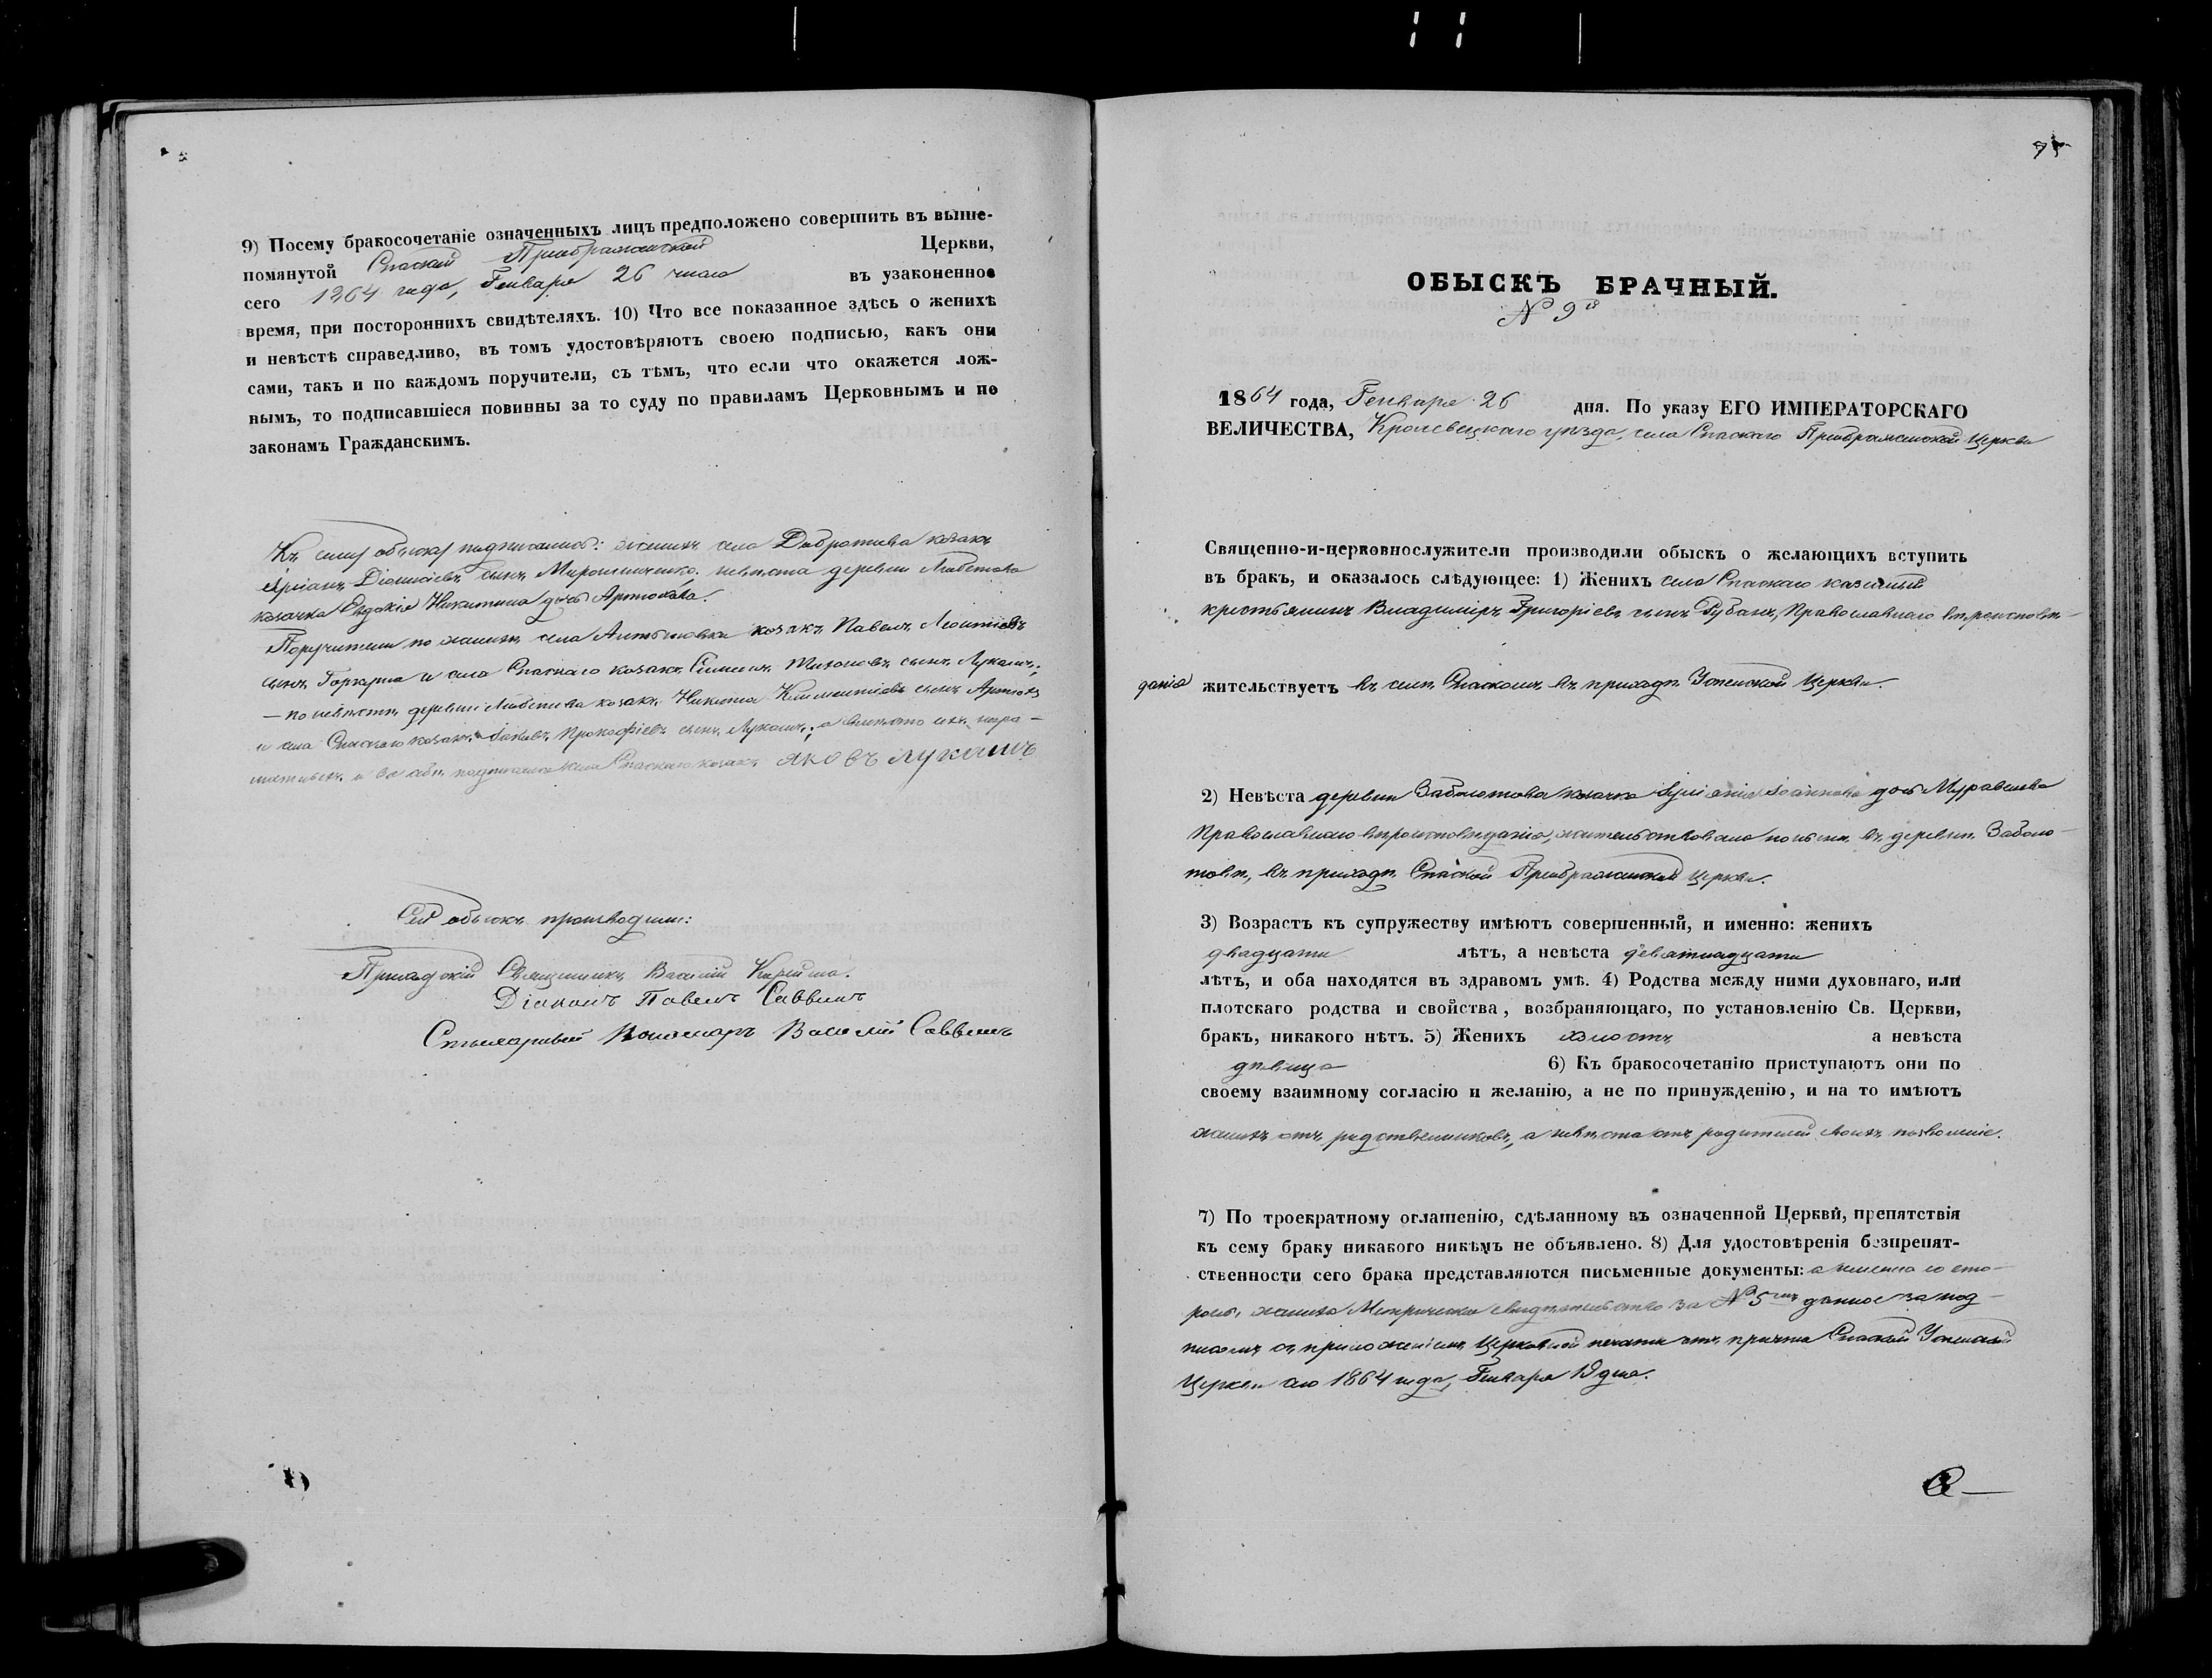 9) Посему бракосочетаніе означенныхъ лицъ предположено совершить въ выше-
помянутой Спаской Преображенской Церкви,
сего 1864 года, Генваря 26 числа въ узаконенное
время, при постороннихъ свидѣтеляхъ. 10) Что все показанное здѣсь о женихѣ
и невѣстѣ справедливо, въ томъ удостовѣряютъ своею подписью, какъ они
сами, такъ и по каждомъ поручители, съ тѣмъ, что если что окажется лож-
нымъ, то подписавшіеся повинны за то суду по правиламъ Церковнымъ и по
законамъ Гражданскимъ.
Къ сему обыску подписались: женихъ села Добротова козакъ
Діонисіевъ сынъ Мирошниченко, невѣста деревни Любитова
козачка Евдокія Никитина дочь Артюхова.
Поручители по женихѣ села козакъ Павелъ Леонтіевъ
сынъ и села Спаскаго козакъ Симеонъ Тихоновъ сынъ Лукашъ;
— по невѣстѣ деревни Любитова козакъ Никита Климентіевъ сынъ Артюхъ
и села Спаскаго козакъ Іаковъ Прокофіевъ сынъ Лукашъ; а вмѣсто ихъ негра-
мотныхъ и за себя подписался села Спаскаго козакъ Яковъ Лукашъ
Сей обыскъ производили:
Приходскій Священникъ Василій
Діаконъ Павелъ Саввичъ
Пономарь Василій Саввичъ
ОБЫСКЪ БРАЧНЫЙ.
№ 9й
1864 года, Генваря 26 дня. По указу ЕГО ИМПЕРАТОРСКАГО
ВЕЛИЧЕСТВА, Кролевецкаго уѣзда, села Спаскаго Преображенской Церкви
Священно-и-церковнослужители производили обыскъ о желающихъ вступить
въ бракъ, и оказалось слѣдующее: 1) Женихъ села Спаскаго казенный
крестьянинъ Владиміръ Григоріевъ сынъ Рубанъ, Православнаго вѣроисповѣ-
данія жительствуетъ въ селѣ Спаскомъ въ приходѣ Успенской Церкви.
2) Невѣста деревни Заболотова козачка Іуліанія Іоаннова дочь Муравьева
Православнаго вѣроисповѣданія, жительствовала понынѣ въ деревнѣ Заболо-
товѣ, въ приходѣ Спаской Преображенской Церкви.
3) Возрастъ къ супружеству имѣютъ совершенный, и именно: женихъ
двадцати лѣтъ, а невѣста девятнадцати
лѣтъ, и оба находятся въ здравомъ умѣ. 4) Родства между ними духовнаго, или
плотскаго родства и свойства, возбраняющаго, по установленію Св. Церкви,
бракъ, никакого нѣтъ. 5) Женихъ холостъ а невѣста
дѣвица 6) Къ бракосочетанію приступаютъ они по
своему взаимному согласію и желанію, а не по принужденію, и на то имѣютъ
женихъ отъ родственниковъ, а невѣста отъ родителей своихъ позволеніе.
7) По троекратному оглашенію, сдѣланному въ означенной Церкви, препятствія
къ сему браку никакого никѣмъ не объявлено. 8) Для удостовѣренія безпрепят-
ственности сего брака представляются письменные документы: а именно со сто-
роны жениха Метрическое свидѣтельство за № 5мъ данное за под-
писомъ съ приложеніемъ Церковной печати отъ причта Спаской Успенской
Церкви сего 1864 года, Генваря 19 дня.